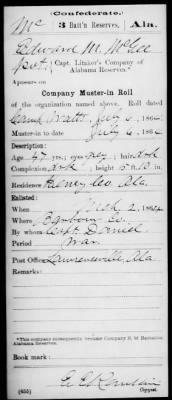 (Confederate.)
Mc 3 Batt'n Reserves, Ala.
Edward M. McGee
Pvt, Capt. Litaker's Company of
Alabama Reserves.*
Appears on
Company Muster-in Roll
of the organization named above. Roll dated
Camp Watts July 6, 1864
Muster-in to date July 6, 1864
Description:
Age 47 yrs; eyes ; hair Drk
Complexion Drk; height 5 ft. in.
Residence Henry Co. Ala.
Enlisted:
When Mch 2, 1864
Where Barbour Co.
By whom Capt. Daniel
Period War.
Post Office Lawrenceville, Ala.
Remarks:
*This company subsequently became Company
Alabama Reserves.
Book mark:
(655) Copyist.